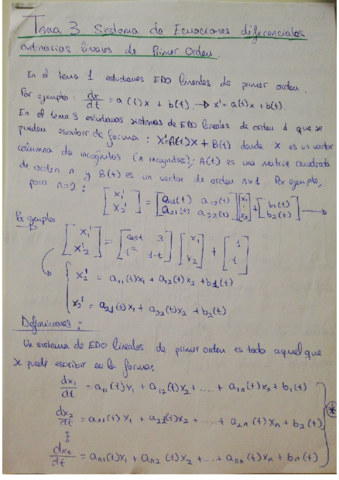 Tema 3 Sistema de Ecuaciones diferenciales
ordinarias lineales de Primer Orden
En el tema 1 estudiamos EDO lineales de primer orden.
Por ejemplo: dx/dt = a(t)x + b(t) → x' = a(t)x + b(t).
En el tema 3 estudiamos sistemas de EDO lineales de orden 1 que se
pueden escribir de forma: X' = A(t)X + B(t) donde X es un vector
columna de incógnitas (n incognitas); A(t) es una matriz cuadrada
de orden n y B(t) es un vector de orden n×1. Por ejemplo,
para n=2: [x1' x2'] = [a11(t) a12(t) a21(t) a22(t)] [x1 x2] + [b1(t) b2(t)] →
Por ejemplo
[x1' x2'] = [cost 3 t² 1-t] [x1 x2] + [1 t]
x1' = a11(t)x1 + a12(t)x2 + b1(t)
x2' = a21(t)x1 + a22(t)x2 + b2(t)
Definiciones:
Un sistema de EDO lineales de primer orden es todo aquel que
se puede escribir en la forma:
dx1/dt = a11(t)x1 + a12(t)x2 + .... + a1n(t)xn + b1(t)
dx2/dt = a21(t)x1 + a22(t)x2 + ... + a2n(t)xn + b2(t) *
dxn/dt = an1(t)x1 + an2(t)x2 + ... + ann(t)xn + bn(t)